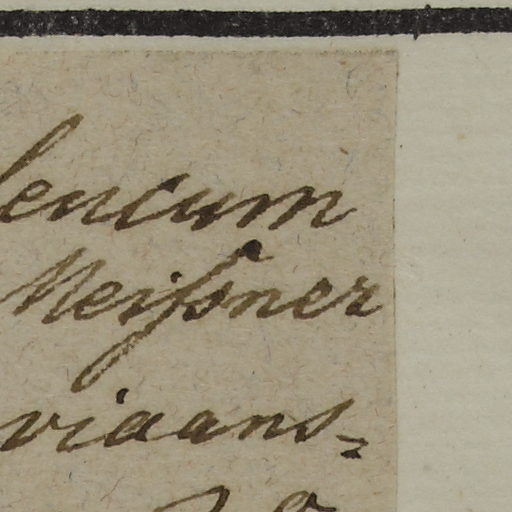 lencum
Meißner
viaans-